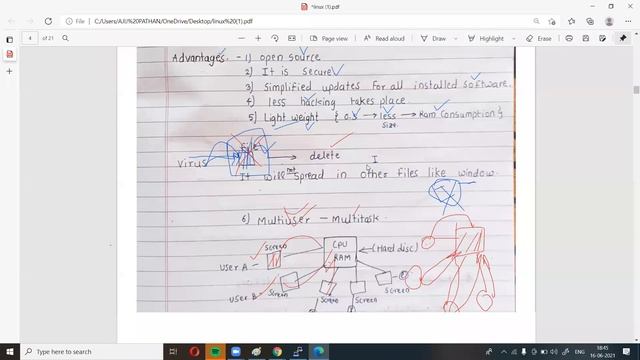 *linux (1).pdf
C:/Users/AJIJ%20PATHAN/OneDrive/Desktop/linux%20(1).pdf
4 of 21
Page view
Read aloud
Draw
Highlight
Erase
Advantages - 1) open source
2) It is secure
3) Simplified updates for all installed software.
4) less hacking takes place.
5) Light weight { O.S → less size → Ram Consumption }
Virus
File
delete
It will not spread in other files like window.
6) Multiuser - Multitask
Screen
CPU
RAM
(Hard disc)
User A -
User B -
Screen
Screen
Screen
Screen
Type here to search
ENG
18:45
16-06-2021